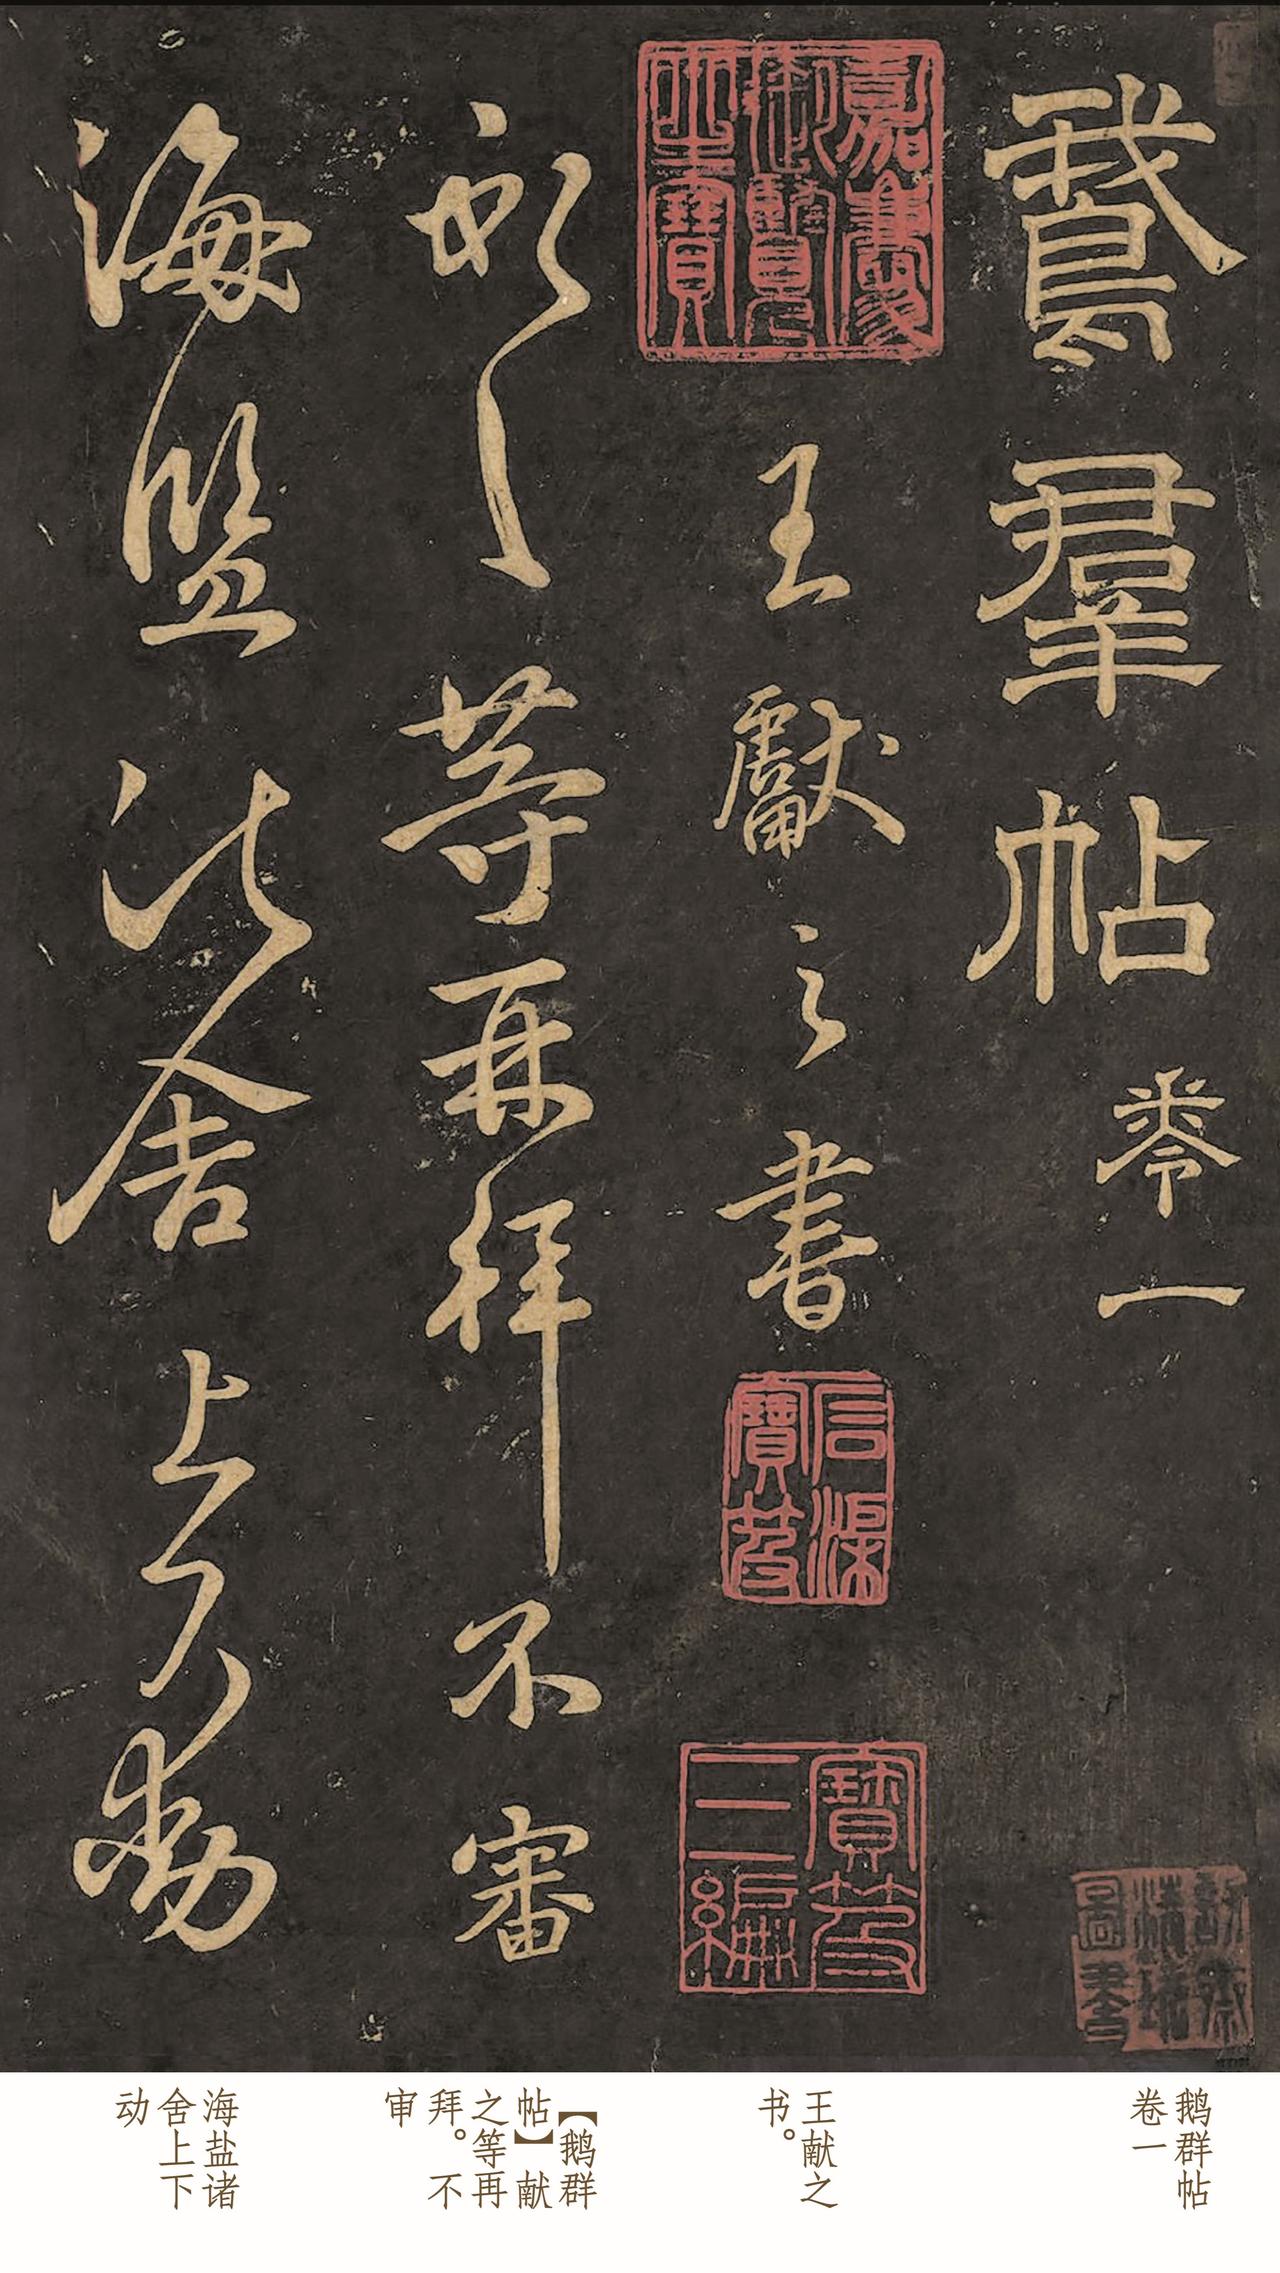 鵞羣帖
卷一
嘉慶御覽之寶
王獻之書
石渠寶笈
寶笈三編
獻之等再拜不審
海盐諸舍上下動
鹅群帖
卷一
王献之
书。
【鹅群
帖】献
之等再
拜。不
审
海盐诸
舍上下
动